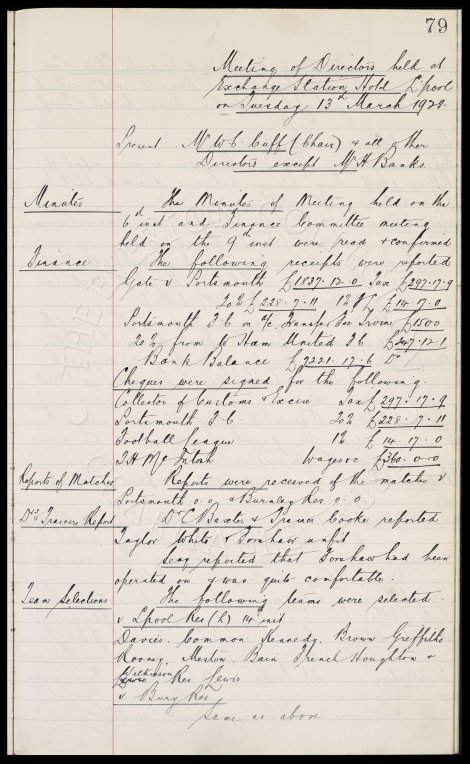 79
Meeting of Directors held at
Exchange Station Hotel L'pool
on Tuesday 13th March 1928.
Present Mr W C Cuff (Chair) & all other
Directors except Mr A Banks
Minutes The Minutes of Meeting held on the
6 inst and Finance Committee meeting
held on the 9th inst were read & confirmed
Finance The following receipts were reported
Gate v Portsmouth £1837.12.0 Tax £297.17.9
20% £228.7.11 1% £14.17.0
Portsmouth F.C. on a/c Transfer Fee Irvine £1500
20% from W Ham United F.C £247.12.1
Bank Balance £9221.17.6 Dr
Cheques were signed for the following.
Collector of Customs & Excise Tax £297.17.9
Portsmouth F.C. 20% £228.7.11
Football League 1% £14.17.0
T.H. McIntosh Wages &c £360.0.0
Reports of Matches Reports were received of the matches v
Portsmouth 0.0 & Burnley Res 0.0.
Drs & Trainers Report Dr C Baxter & Trainer Cooke reported
Taylor White & Forshaw unfit
Secy reported that Forshaw had been
operated on & was quite comfortable.
Team Selections The following teams were selected.
v L'pool Res (h) 14 inst
Davies. Common Kennedy. Brown Griffiths
Rooney. Meston. Bain French Houghton &
Wilkinson
Res Lewis
v Bury Res
Same as above.